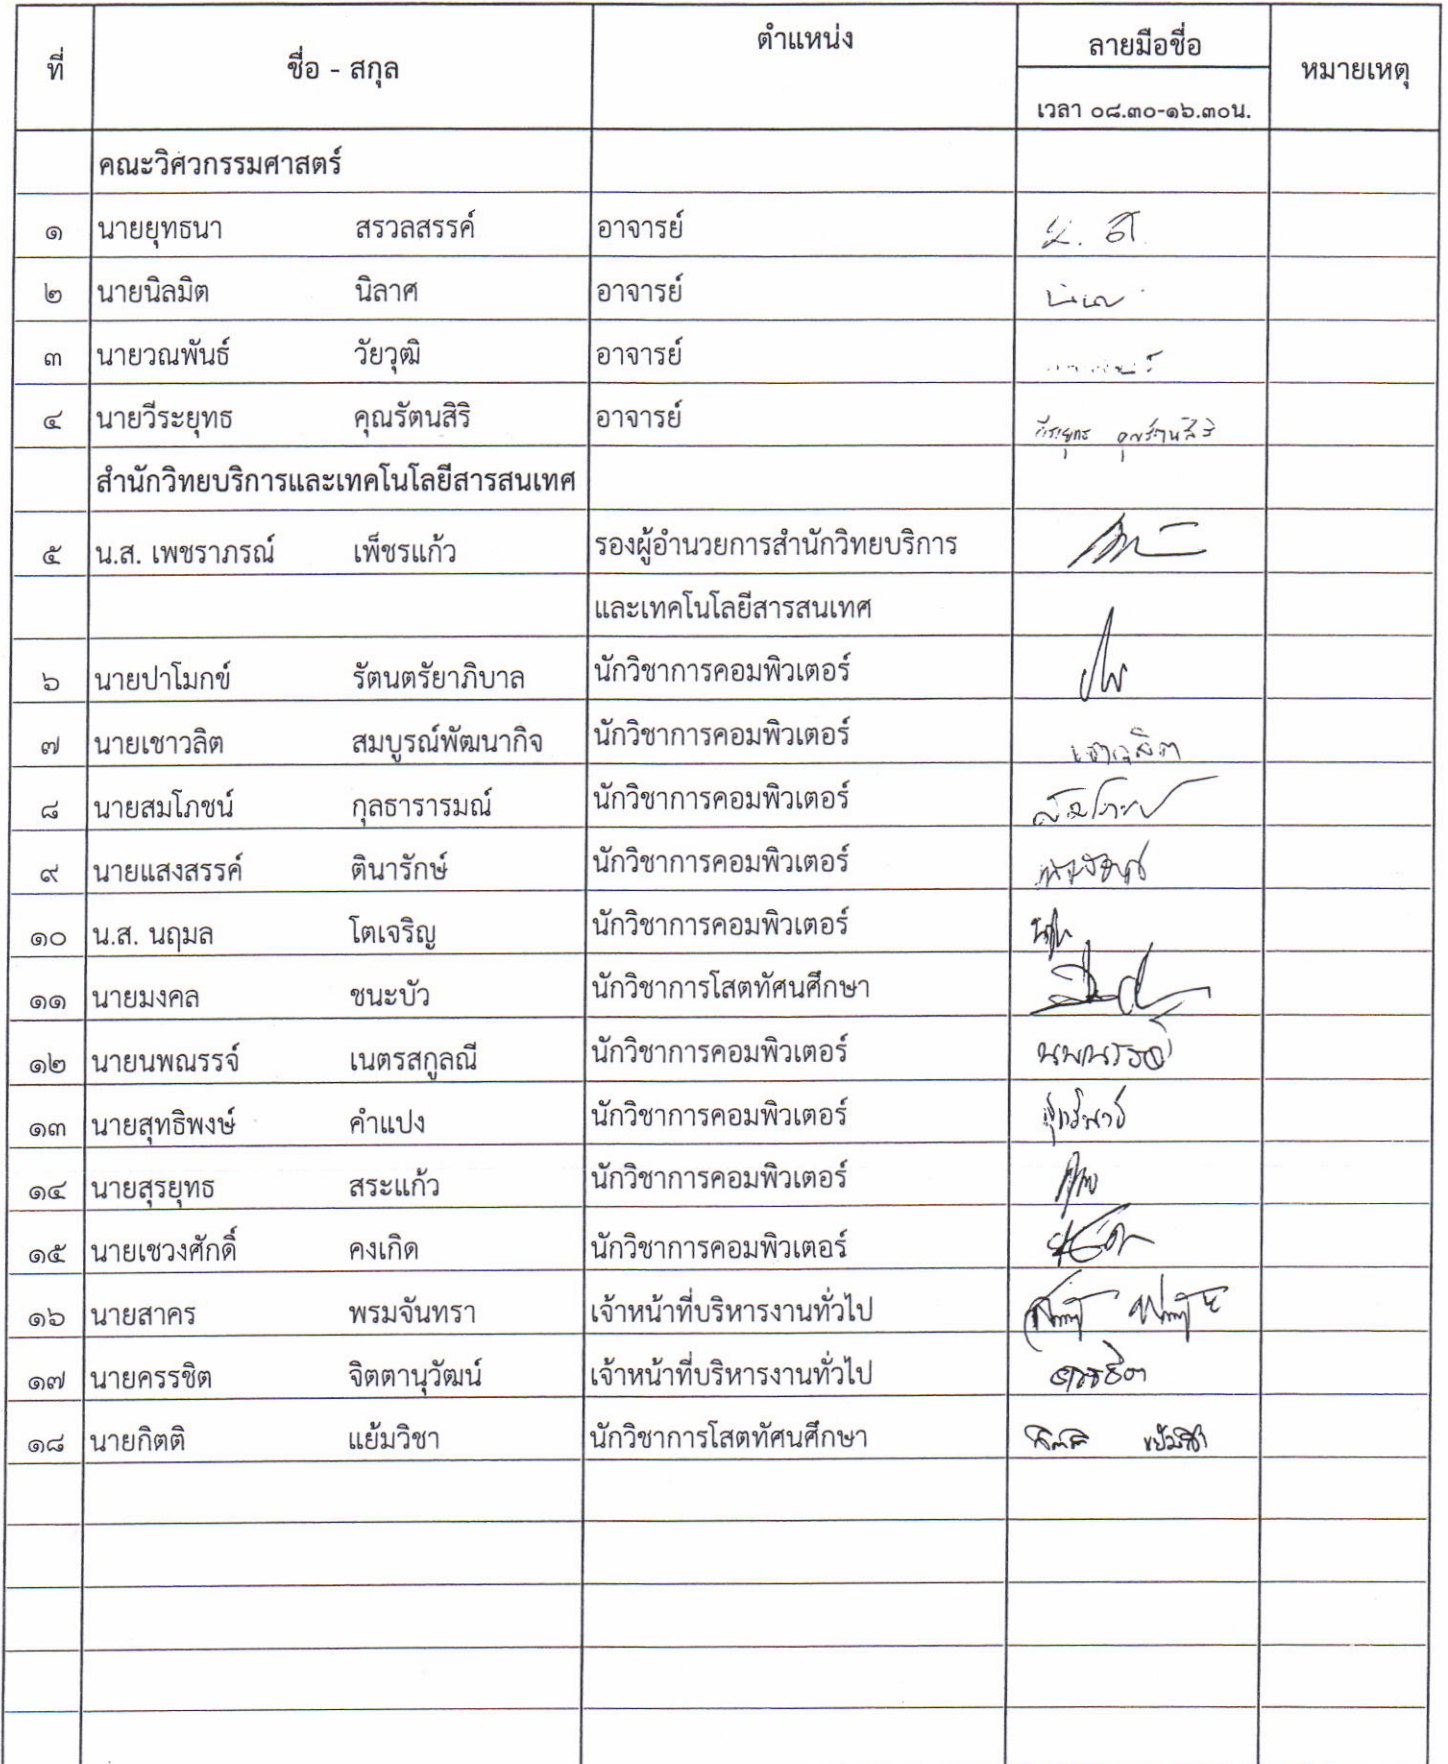 ที่ ชื่อ - สกุล ตำแหน่ง ลายมือชื่อ หมายเหตุ
เวลา ๐๘.๓๐-๑๖.๓๐น.
คณะวิศวกรรมศาสตร์
๑ นายยุทธนา สรวลสรรค์ อาจารย์ ย. ส.
๒ นายนิลมิต นิลาศ อาจารย์
๓ นายวณพันธ์ วัยวุฒิ อาจารย์
๔ นายวีระยุทธ คุณรัตนสิริ อาจารย์ วีระยุทธ คุณรัตนสิริ
สำนักวิทยบริการและเทคโนโลยีสารสนเทศ
๕ น.ส. เพชราภรณ์ เพ็ชรแก้ว รองผู้อำนวยการสำนักวิทยบริการ
และเทคโนโลยีสารสนเทศ
๖ นายปาโมกข์ รัตนตรัยาภิบาล นักวิชาการคอมพิวเตอร์
๗ นายเชาวลิต สมบูรณ์พัฒนากิจ นักวิชาการคอมพิวเตอร์ เชาวลิต
๘ นายสมโภชน์ กุลธารารมณ์ นักวิชาการคอมพิวเตอร์
๙ นายแสงสรรค์ ตินารักษ์ นักวิชาการคอมพิวเตอร์
๑๐ น.ส. นฤมล โตเจริญ นักวิชาการคอมพิวเตอร์
๑๑ นายมงคล ชนะบัว นักวิชาการโสตทัศนศึกษา
๑๒ นายนพณรรจ์ เนตรสกูลณี นักวิชาการคอมพิวเตอร์ นพณรรจ์
๑๓ นายสุทธิพงษ์ คำแปง นักวิชาการคอมพิวเตอร์
๑๔ นายสุรยุทธ สระแก้ว นักวิชาการคอมพิวเตอร์
๑๕ นายเชวงศักดิ์ คงเกิด นักวิชาการคอมพิวเตอร์
๑๖ นายสาคร พรมจันทรา เจ้าหน้าที่บริหารงานทั่วไป
๑๗ นายครรชิต จิตตานุวัฒน์ เจ้าหน้าที่บริหารงานทั่วไป ครรชิต
๑๘ นายกิตติ แย้มวิชา นักวิชาการโสตทัศนศึกษา กิตติ แย้มวิชา